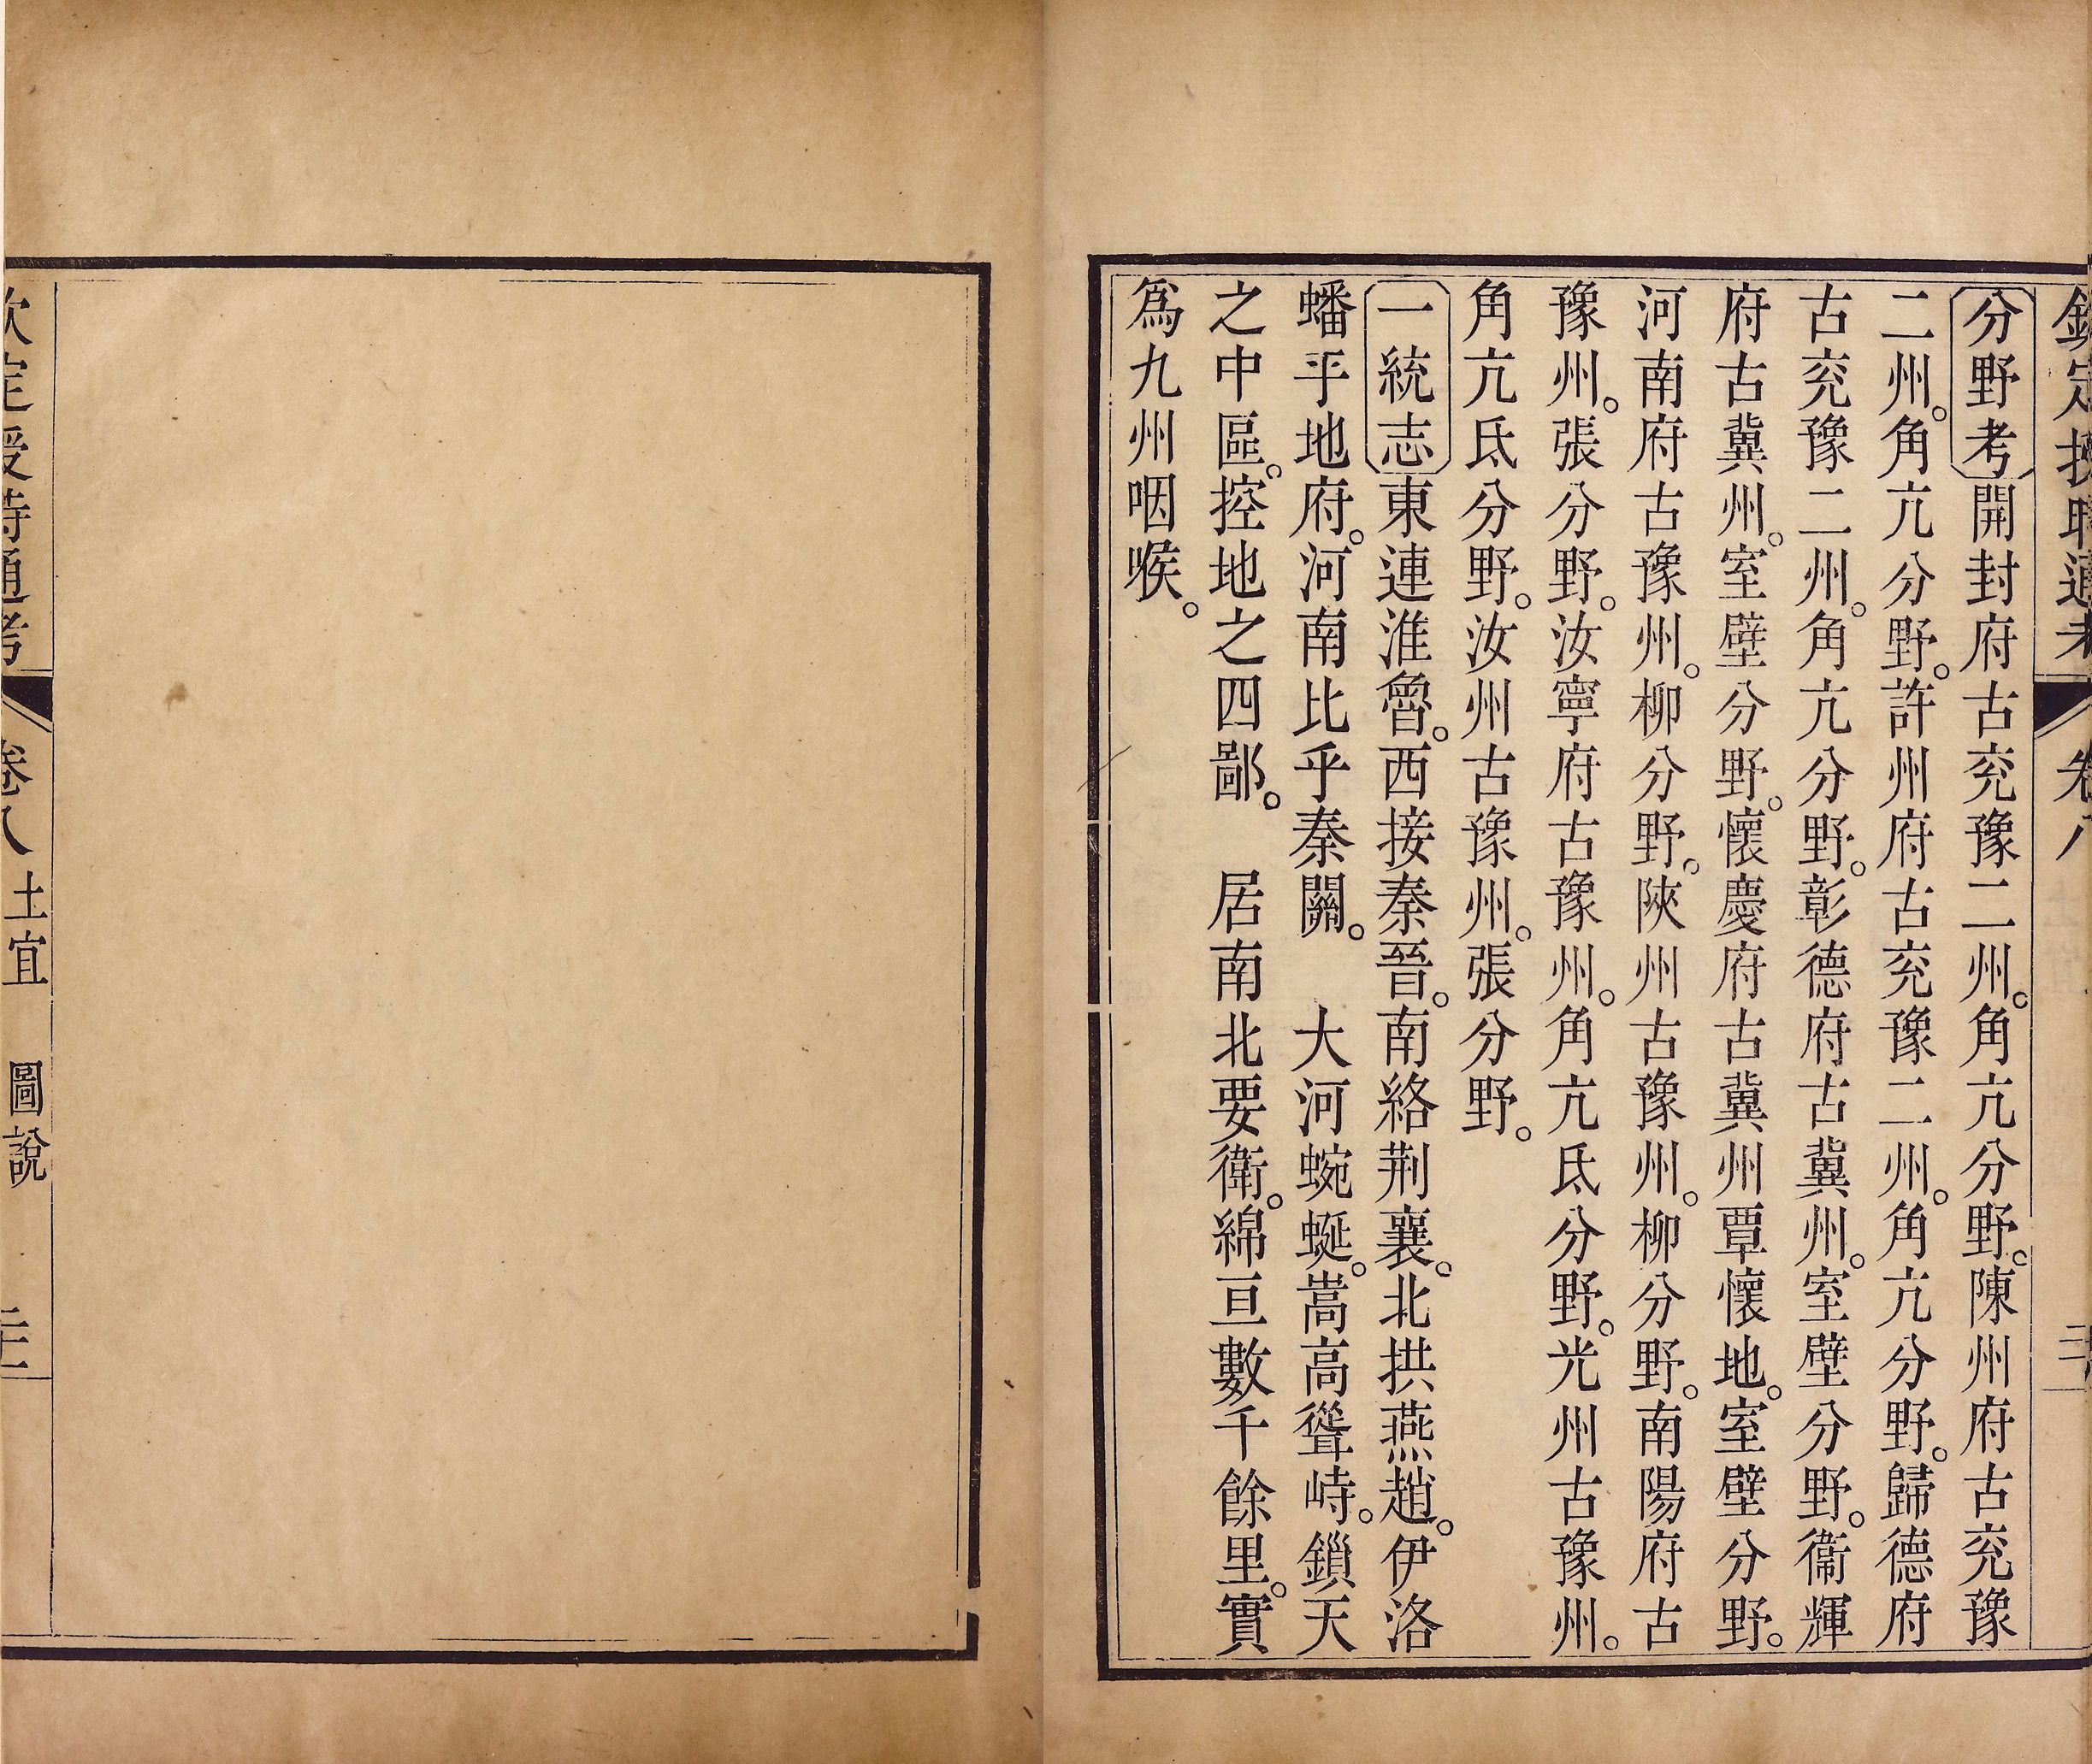 欽定授時通考
卷八
分野考開封府古兖豫二州。角亢分野。陳州府古兖豫
二州。角亢分野。許州府古兖豫二州。角亢分野。歸德府
古兖豫二州。角亢分野。彰德府古冀州。室壁分野。衞輝
府古冀州。室壁分野。懷慶府古冀州覃懷地。室壁分野。
河南府古豫州。柳分野。陝州古豫州。柳分野。南陽府古
豫州。張分野。汝寧府古豫州。角亢氐分野。光州古豫州。
角亢氐分野。汝州古豫州。張分野。
一統志東連淮魯。西接秦晉。南絡荆襄。北拱燕趙。伊洛
蟠乎地府。河南比乎秦關。　大河蜿蜒。嵩高聳峙。鎖天
之中區。控地之四鄙。　居南北要衛。綿亘數千餘里。實
爲九州咽喉。
欽定授時通考
卷八 土宜 圖說